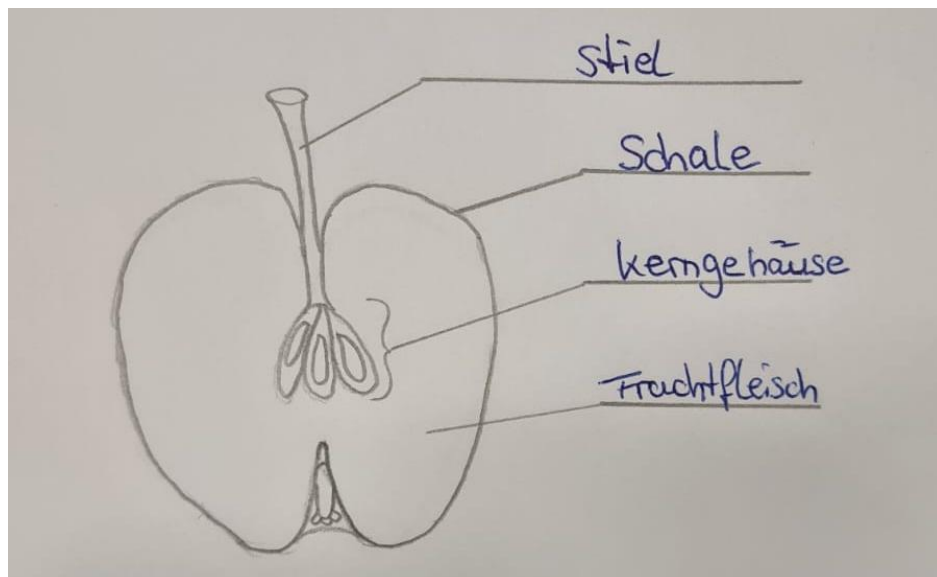 Stiel
Schale
Kerngehäuse
Fruchtfleisch